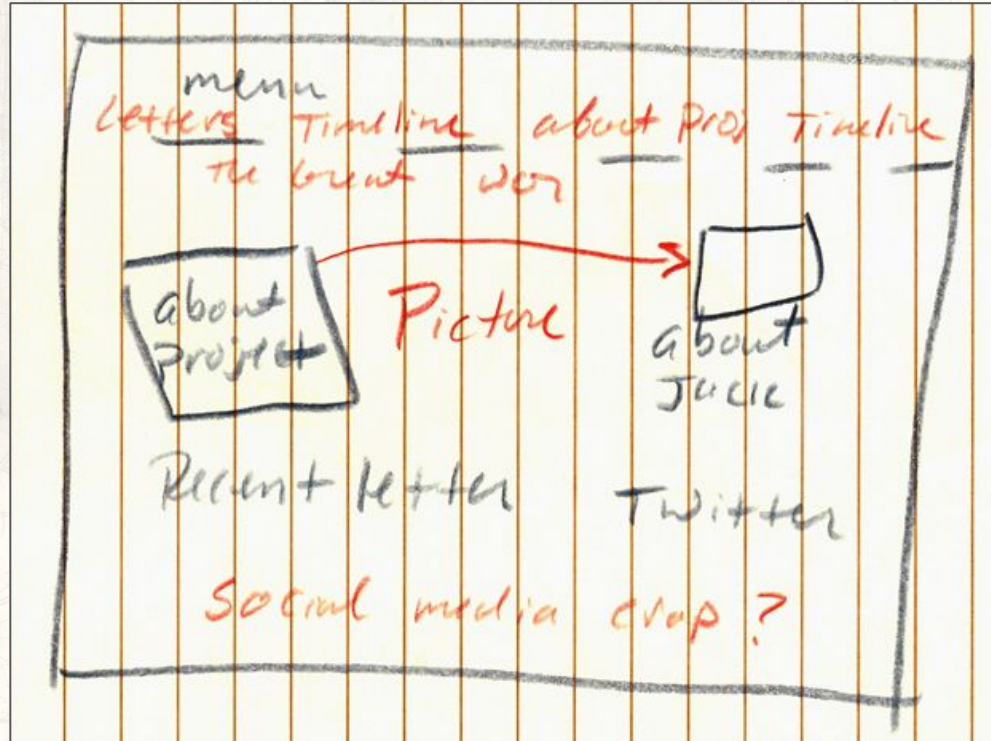 menu
Letters Timeline about Proj Timeline
The Great War
about
project
Picture
about
Jack
Recent letter
Twitter
Social media crap?